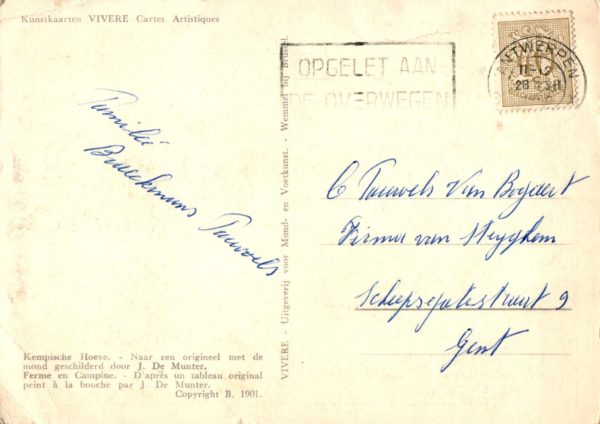 Kunstkaarten VIVERE Cartes Artistiques
OPGELET AAN
DE OVERWEGEN
ANTWERPEN
Familie
Broeckmans Pauwels
VIVERE - Uitgeverij voor Mond- en Voetkunst. - Wemmel bij Brussel.
C Pauwels Van Bogaert
Firma van
9
Gent
Kempische Hoeve. - Naar een origineel met de
mond geschilderd door J. De Munter.
Ferme en Campine. - D'après uo tableau original
peint à la bouche par J. De Munter.
Copyright B. 1901.